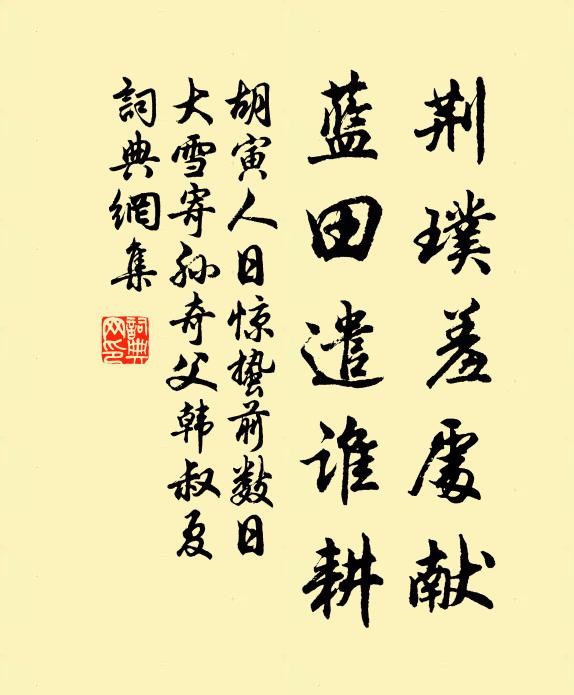 荆璞羞處献
蓝田遣谁耕
胡寅人日惊蛰前数日
大雪寄孙奇父韩叔夏
詞典網集
詞典网印